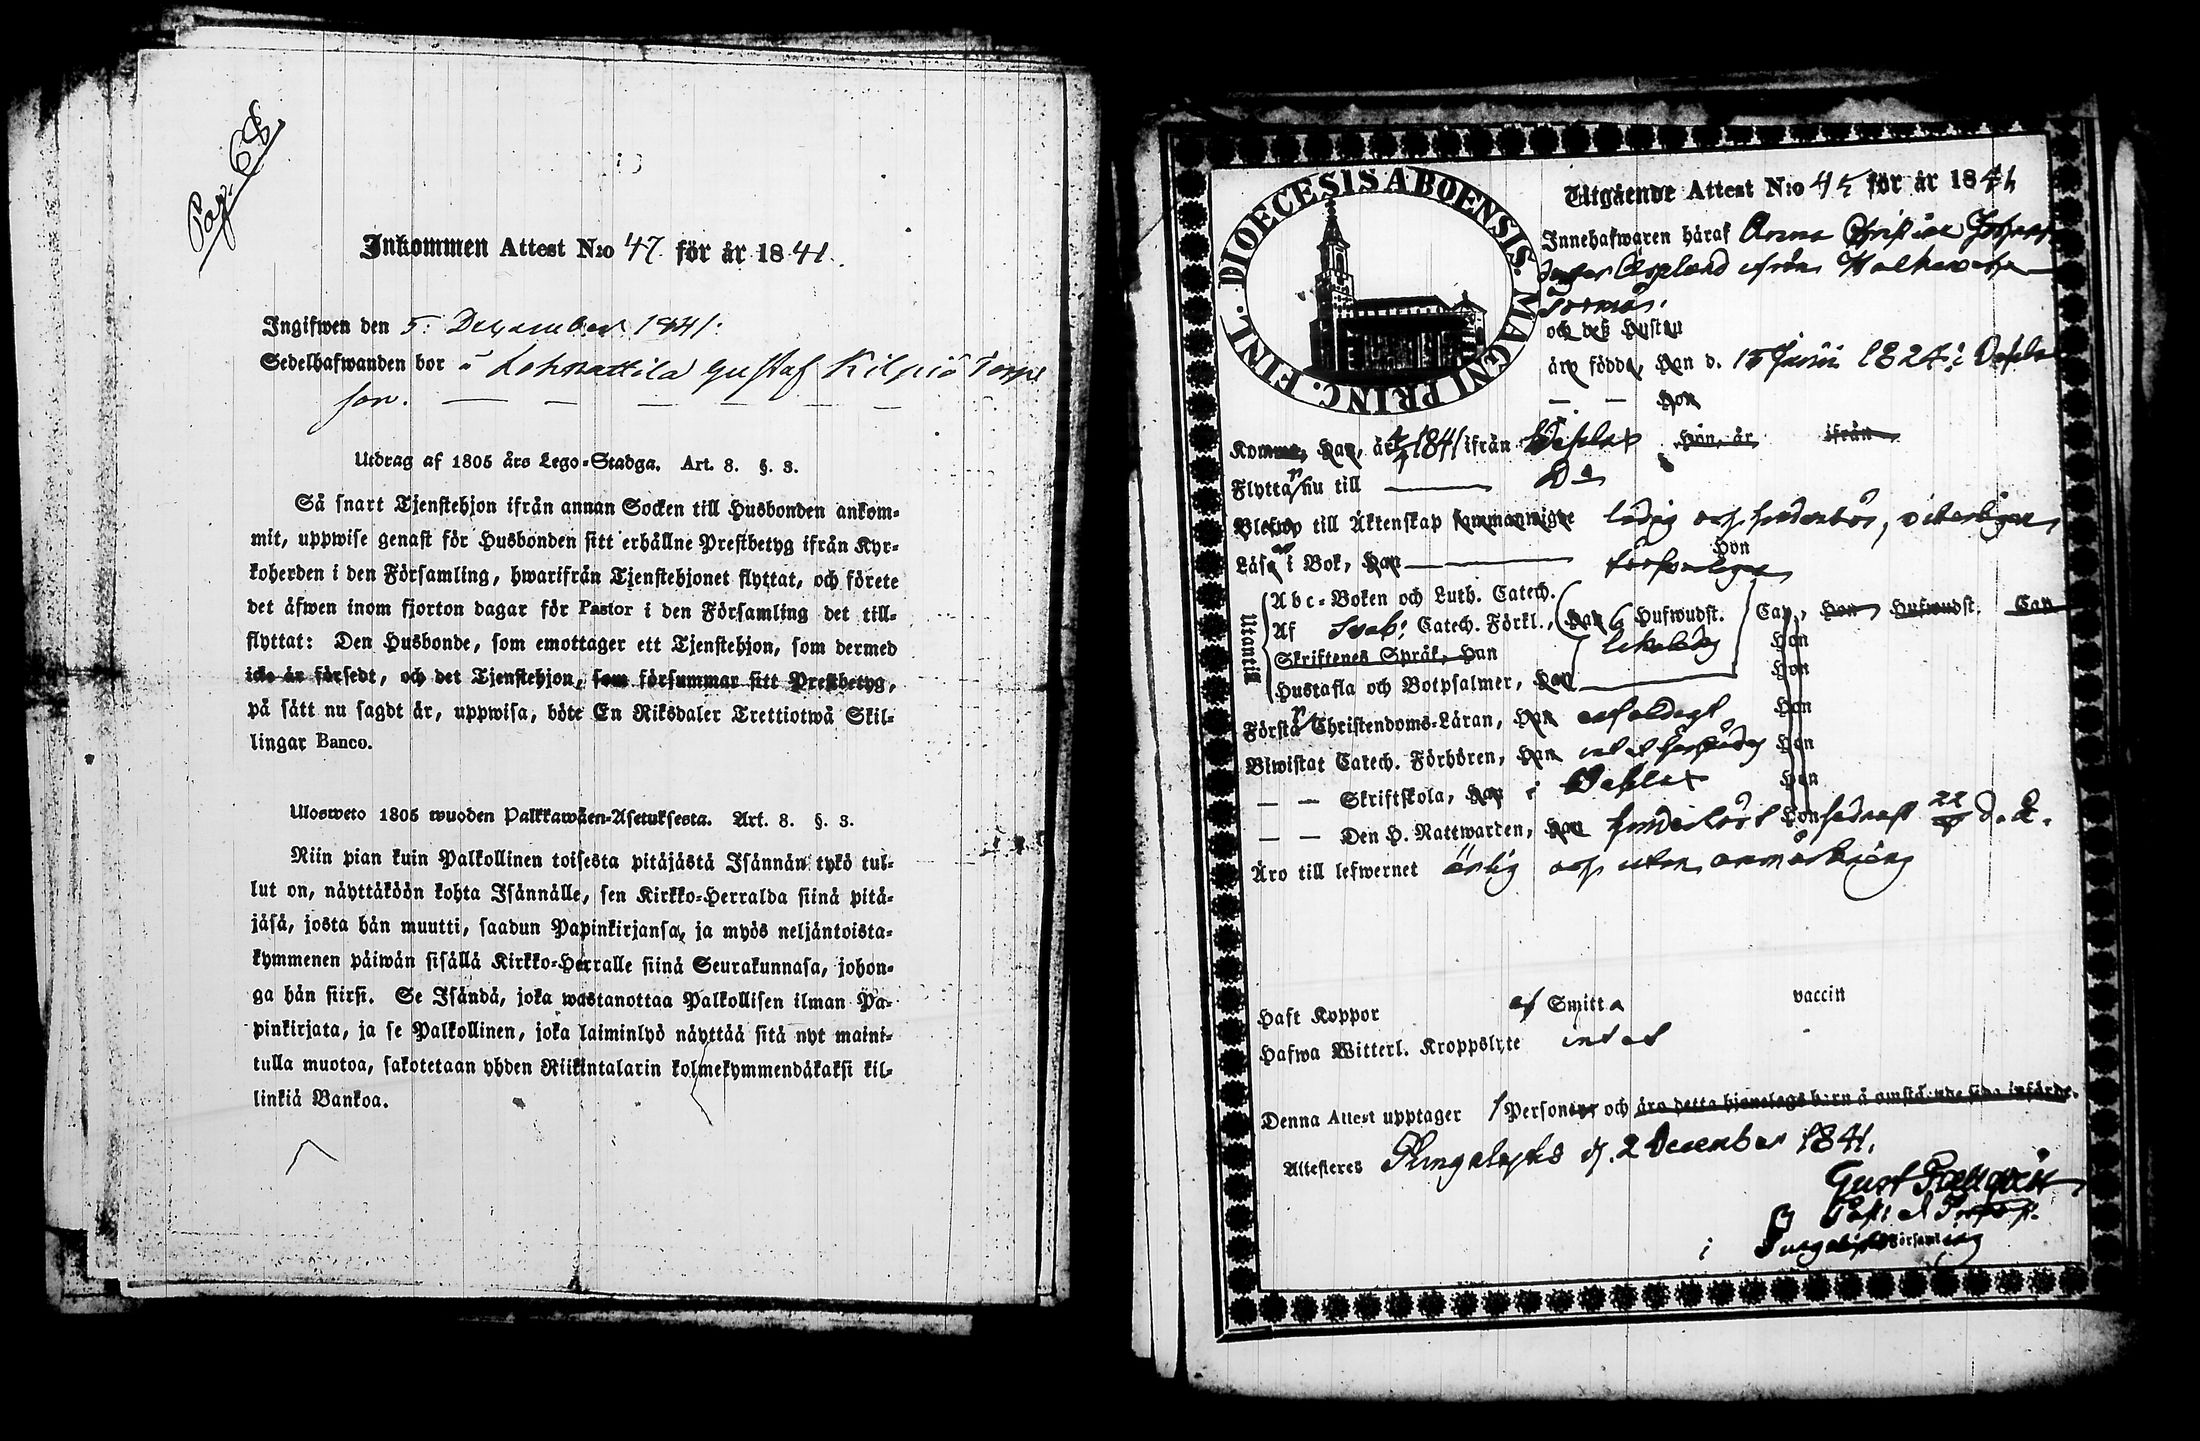 Pag. 68.
Inkommen Attest N:o 47 för år 1841.
Ingifwen den 5. December 1841.
Sedelhafwanden bor å Lehmattila Gustaf Kilpiö Torp
son.
Utdrag af 1805 års Lego-Stadga. Art. 8. §. 3.
Så snart Tjenstehjon ifrån annan Socken till Husbonden ankom-
mit, uppwise genast för Husbonden sitt erhållne Prestbetyg ifrån Kyr-
koherden i den Församling, hwarifrån Tjenstehjonet flyttat, och förete
det äfwen inom fjorton dagar för Pastor i den Församling det till-
flyttat: Den Husbonde, som emottager ett Tjenstehjon, som dermed
icke är försedt, och det Tjenstehjon, som försummar sitt Prestbetyg,
på sätt nu sagdt är, uppwisa, böte En Riksdaler Trettiotwå Skil-
lingar Banco.
Ulosweto 1805 wuoden Palkkawäen-Asetuksesta. Art. 8. §. 3.
Niin pian kuin Palkollinen toisesta pitäjästä Isännän tykö tul-
lut on, näyttäköön kohta Isännälle, sen Kirkko-Herralda siinä pitä-
jäsä, josta hän muutti, saadun Papinkirjansa, ja myös neljäntoista-
kymmenen päiwän sisällä Kirkko-Herralle siinä Seurakunnasa, johon-
ga hän siirsi. Se Isändä, joka wastanottaa Palkollisen ilman Pa-
pinkirjata, ja se Palkollinen, joka laiminlyö näyttää sitä nyt maini-
tulla muotoa, sakotetaan yhden Riikintalarin kolmekymmendäkaksi kil-
linkiä Bankoa.
DIOECESIS ABOENSIS. MAGNI PRINC. FINL.
Utgående Attest N:o 45 för år 1841
Innehafwaren häraf Anna Christina Johans
Asplund ifrån
och deß Hustru
äro födda, Han d. 15 Junii 1824 i
Hon
Komne, Han, år 1841 ifrån Hon, år ifrån
Flytta nu till Do
Blefwo till Äktenskap sammanwigde ledig och hinderlös,
Läsa i Bok, Han Hon försvarligen
Utantill
Abc-Boken och Luth. Catech.
Af Sveb: Catech. Förkl., Han 6 Hufwudst. Cap., Hon Hufwudst. Cap
Skriftenes Språk, Han Hon
Hustafla och Botpsalmer, Han Hon
Förstå Christendoms-Läran, Han enfaldigt Hon
Biwistat Catech. Förhören, Han Hon
— — Skriftskola, Han i Hon
— — Den H. Nattwarden, Han Hon sednast d. å.
Äro till lefwernet ärlig och utan anmärkning
Haft Koppor af Smitta vaccin
Hafwa Witterl. Kroppslyte intet
Denna Attest upptager 1 Personer och äro detta hjonelags barn å omstående sida införde.
Attesteres d. 2 December 1841.
Gust.
i Församling